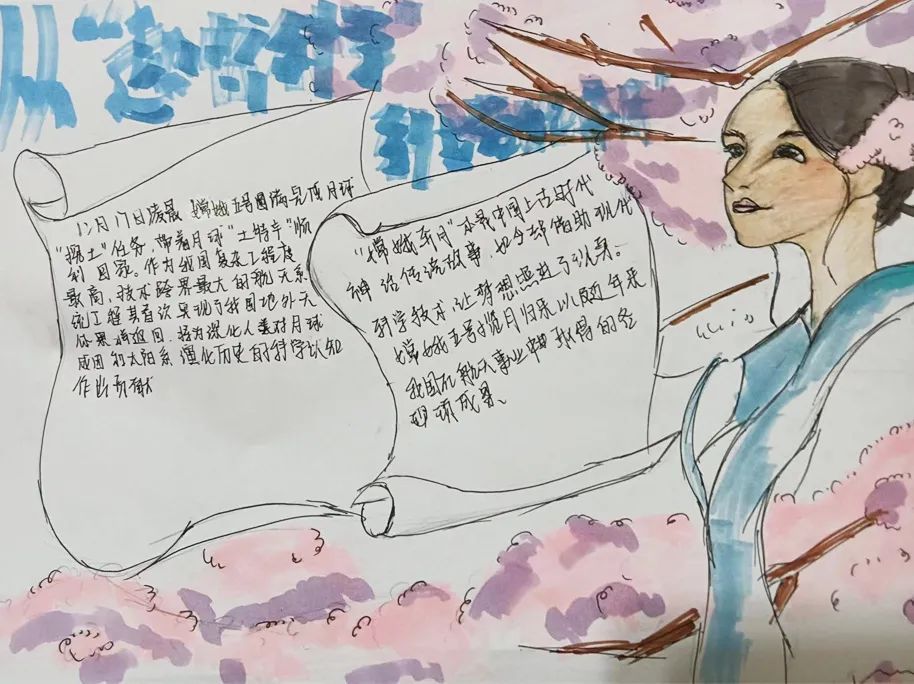 12月17日凌晨 嫦娥五号圆满完成月球
"挖土"任务 带着月球"土特产"顺
利回家。作为我国复杂工程度
最高、技术跨界最大的航天系
统工程其首次实现了我国地外天
体采样返回,将为深化人类对月球
成因和太阳系演化历史的科学认知
作出贡献
"嫦娥奔月"本是中国上古时代
神话传说故事,如今却借助现代
科学技术,让梦想照进了认真。
嫦娥五号携月归来以及近年来
我国在航天事业中取得的各
项成果、